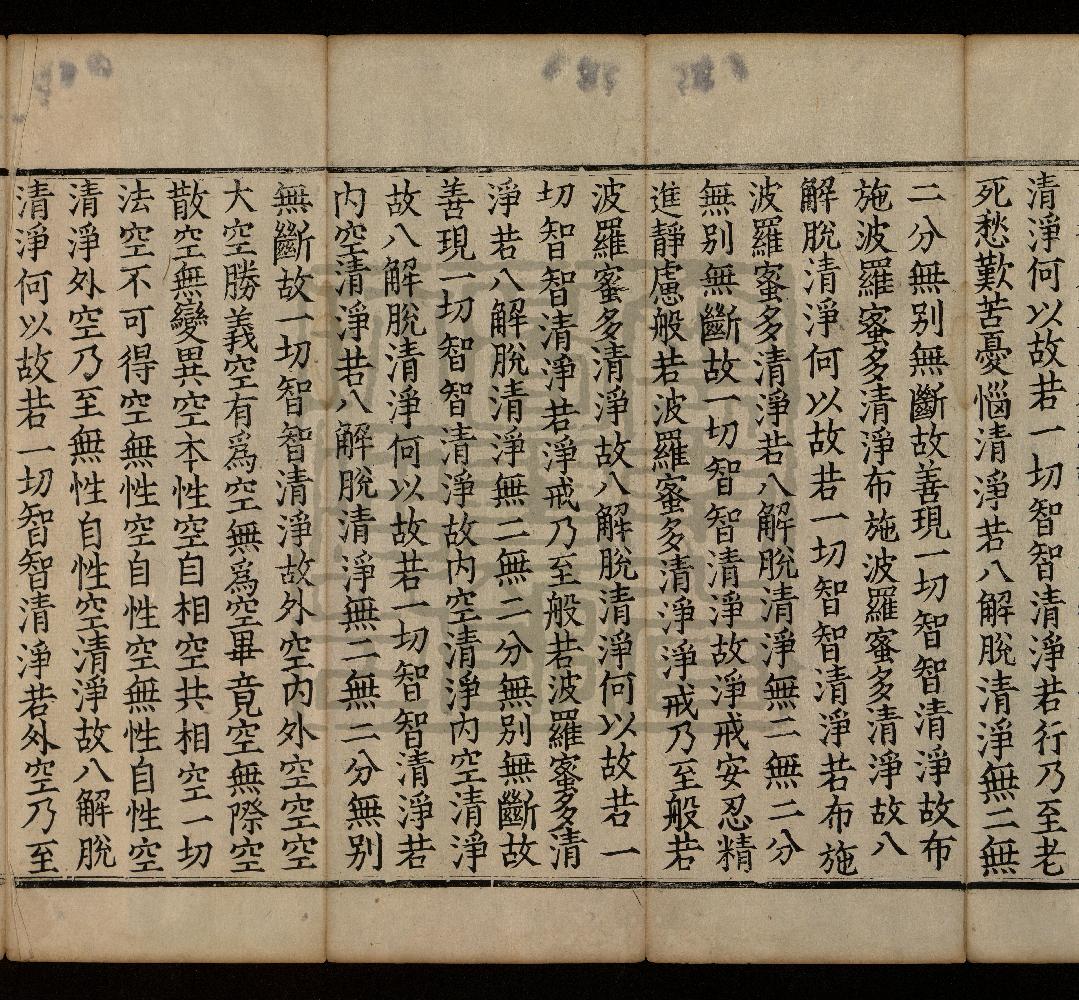 清淨何以故若一切智智清淨若行乃至老
死愁歎苦憂惱清淨若八解脫清淨無二無
二分無別無斷故善現一切智智清淨故布
施波羅蜜多清淨布施波羅蜜多清淨故八
解脫清淨何以故若一切智智清淨若布施
波羅蜜多清淨若八解脫清淨無二無二分
無別無斷故一切智智清淨故淨戒安忍精
進靜慮般若波羅蜜多清淨淨戒乃至般若
波羅蜜多清淨故八解脫清淨何以故若一
切智智清淨若淨戒乃至般若波羅蜜多清
淨若八解脫清淨無二無二分無別無斷故
善現一切智智清淨故內空清淨內空清淨
故八解脫清淨何以故若一切智智清淨若
內空清淨若八解脫清淨無二無二分無別
無斷故一切智智清淨故外空內外空空空
大空勝義空有爲空無爲空畢竟空無際空
散空無變異空本性空自相空共相空一切
法空不可得空無性空自性空無性自性空
清淨外空乃至無性自性空清淨故八解脫
清淨何以故若一切智智清淨若外空乃至